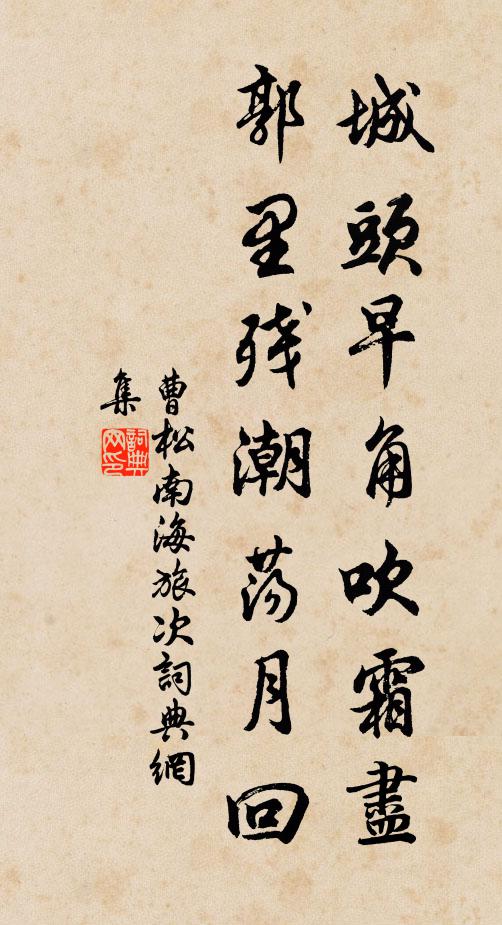 城頭早角吹霜盡
郭里残潮荡月回
曹松南海旅次詞典網
集
詞典
网印